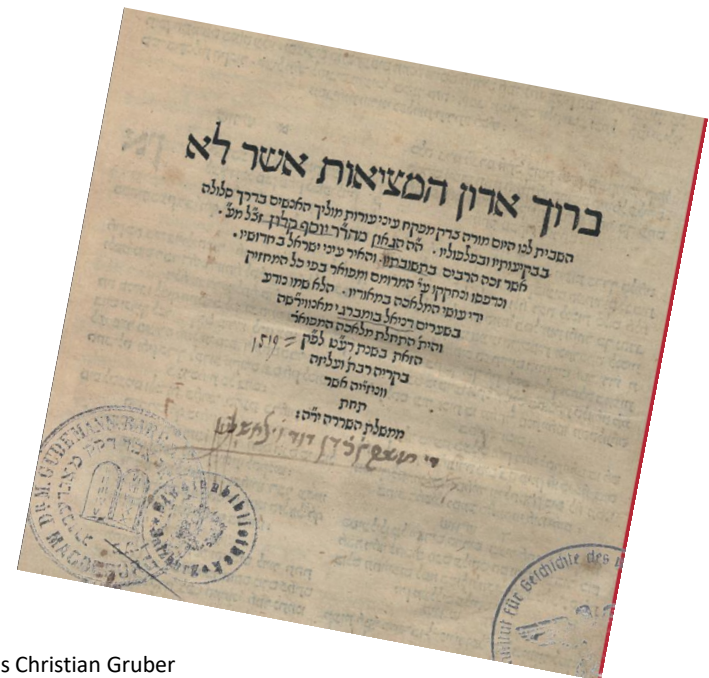 ברוך אדון המציאות אשר לא
השבית לנו היום מורה צדק מפקח עיני עורות מוליך האנשים בדרך סלולה
בבקיעותיו ובפלפוליו. ה"ה הגאון מהר"ר יוסף קולון זצ"ל
אשר זכה הרבים בתשובתיו והאיר עיני ישראל בחדושיו.
ונדפסו ונחקקו ע"י המרומם ומפואר בפי כל המחזיק
ידי עושי המלאכה במאודיו. הלא שמו נודע
בשערים דניאל בומבירגי מאנווירשה
והית' התחלת מלאכה המפואר'
הזאת בשנת רע"ט לפ"ק = 1519
בקריה רבת' ועליזה
ווניזיה אשר
תחת
ממשלת השררה יר"ה:
דוד
DR. M. GÜDEMANN
bibliothek
Institut für Geschichte des
s Christian Gruber